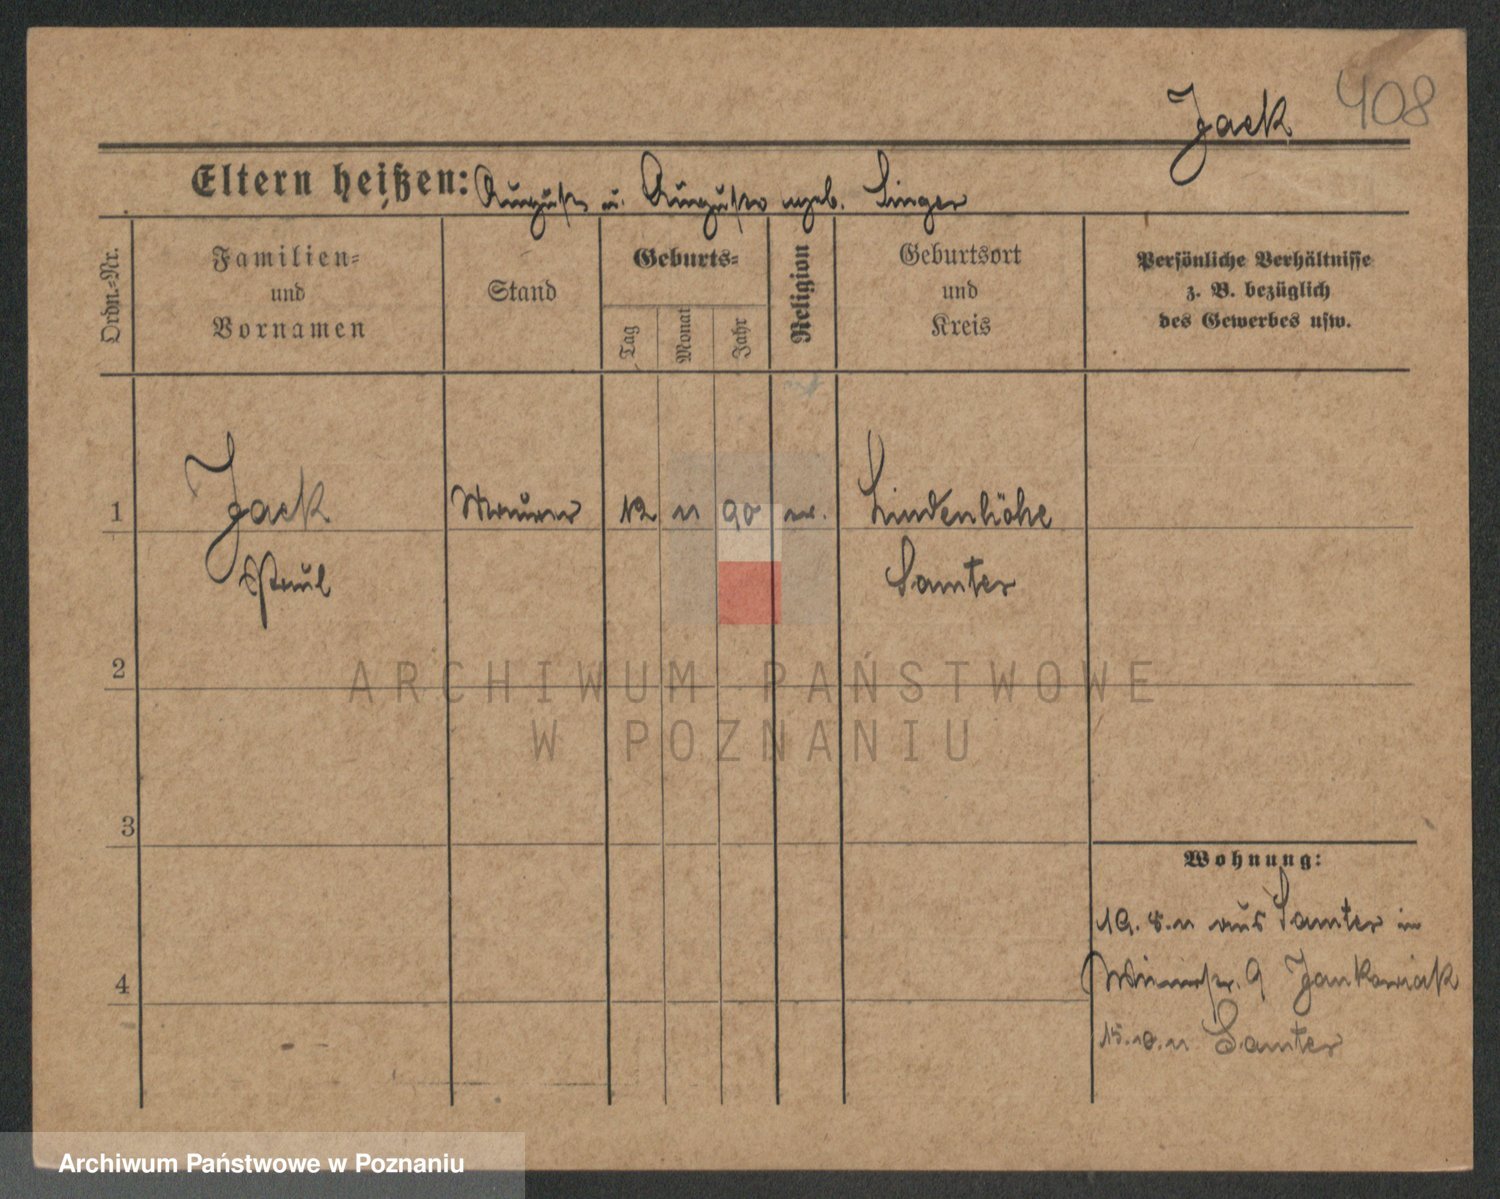 Jack 408
Eltern heißen: August u. Auguste geb. Singer
Ordn.-Nr.
Familien-
und
Vornamen
Stand
Geburts-
Tag
Monat
Jahr
Religion
Geburtsort
und
Kreis
Persönliche Verhältnisse
z. B. bezüglich
des Gewerbes usw.
1 Jack Maurer 12 11 90 ev. Lindenhöhe
Paul Samter
2
ARCHIWUM PAŃSTWOWE
W POZNANIU
3
Wohnung:
19. 8. 11 aus Samter in
9 Jankowiak
4
15. 10. 11 Samter
Archiwum Państwowe w Poznaniu